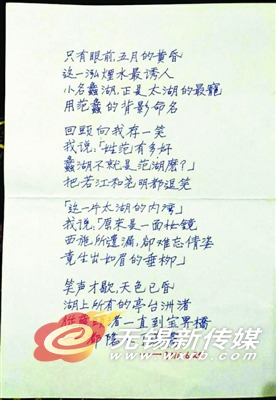 只有眼前,五月的黄昏
这一泓煙水最诱人
小名蠡湖,正是太湖的最寵
用范蠡的背影命名
回頭向我存一笑
我说,「姓范有多好
蠡湖不就是范湖麽?」
把若江和昆明都逗笑
「這一片太湖的内湾」
我说,「原来是一面妆镜
西施所遺漏,卻难忘倩姿
竟生出如眉的垂柳」
笑声才歇,天色已昏
湖上所有的亭台洲渚
者一直到宝界橋
无锡新传媒
www.wxrb.com